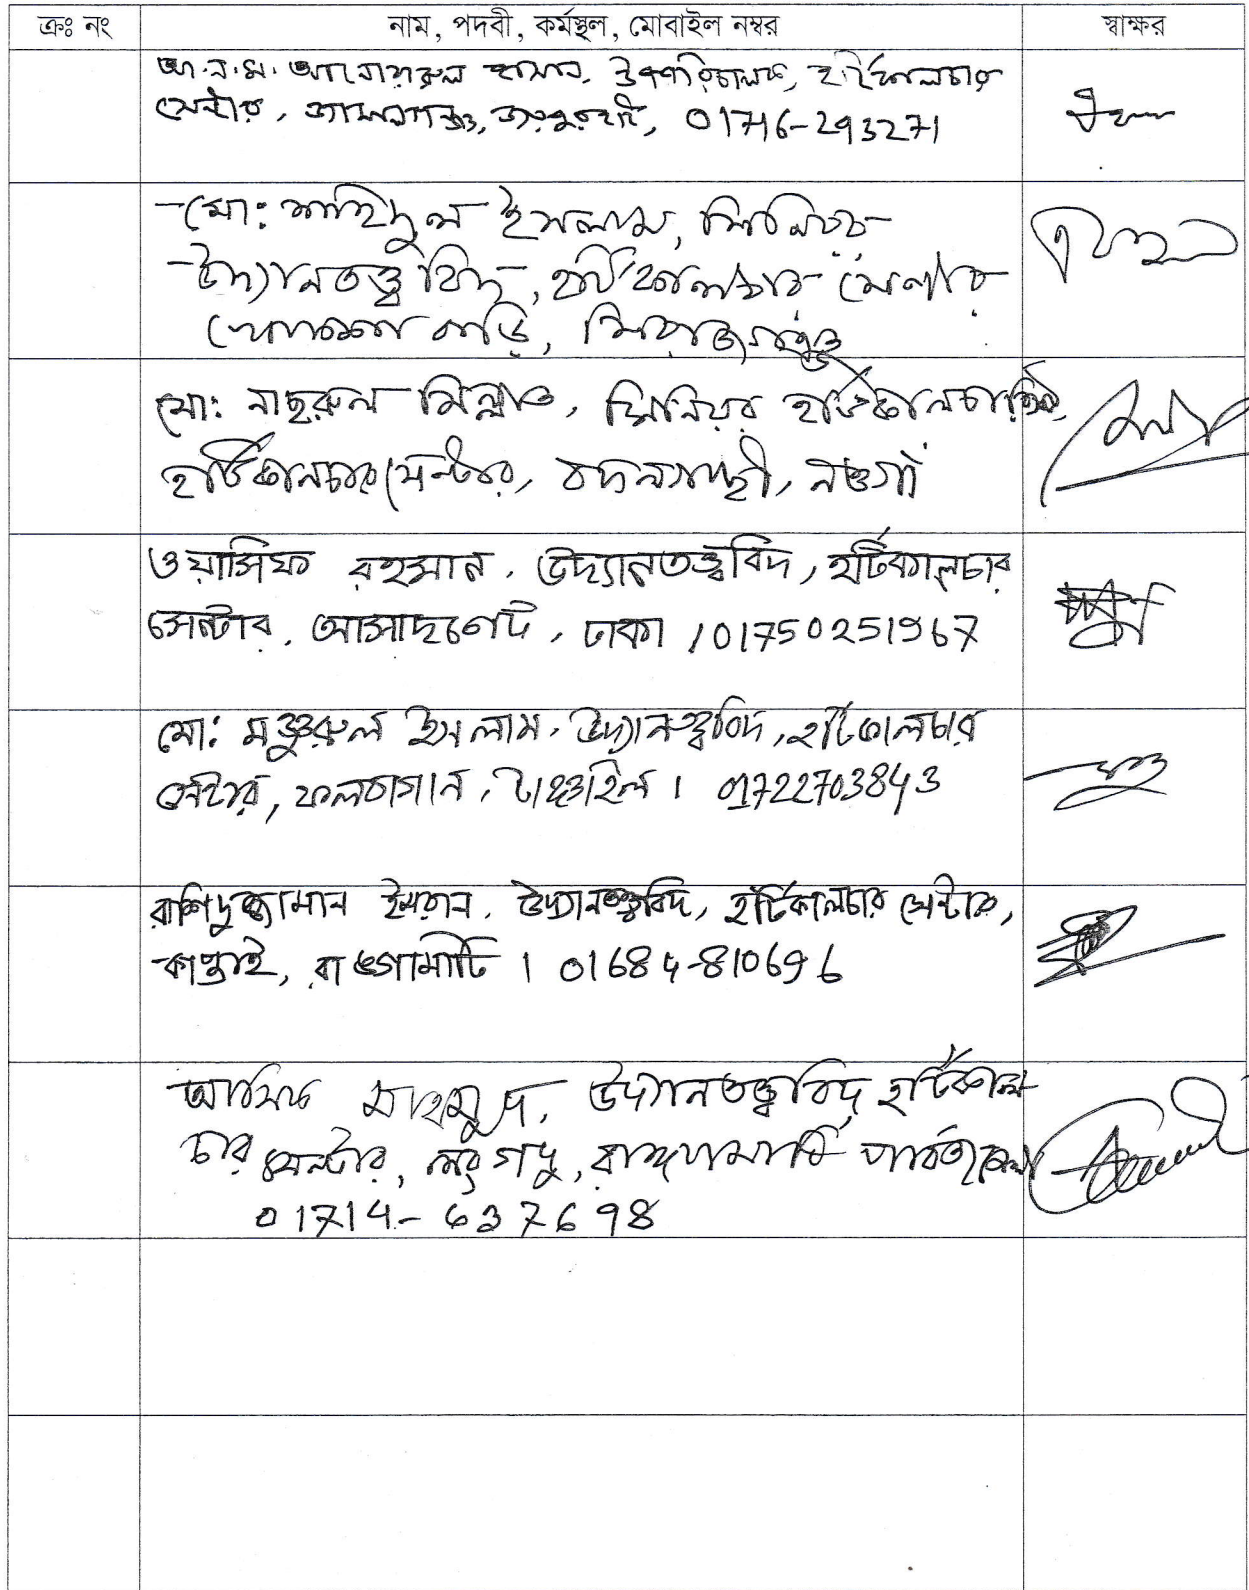 ক্রঃ নং নাম, পদবী, কর্মস্থল, মোবাইল নম্বর স্বাক্ষর
আ.ন.ম. আনোয়ারুল হাসান, উপপরিচালক, হর্টিকালচার
সেন্টার, জামালগঞ্জ, জয়পুরহাট, 01716-293271
মো: শহিদুল ইসলাম, সিনিয়র
উদ্যানতত্ত্ববিদ, হর্টিকালচার সেন্টার
সিরাজগঞ্জ
মো: নাছরুল মিল্লাত, সিনিয়র হর্টিকালচারিস্ট,
হর্টিকালচার সেন্টার, বদলগাছী, নওগাঁ
ওয়াসিফ রহমান, উদ্যানতত্ত্ববিদ, হর্টিকালচার
সেন্টার, আসাদগেট, ঢাকা, 01750251967
মো: মঞ্জুরুল ইসলাম, উদ্যানতত্ত্ববিদ, হর্টিকালচার
সেন্টার, ফলবাগান, টাঙ্গাইল। 01722703843
রাশিদুজ্জামান ইমরান, উদ্যানতত্ত্ববিদ, হর্টিকালচার সেন্টার,
কাপ্তাই, রাঙ্গামাটি। 01684-810696
মাহমুদ, উদ্যানতত্ত্ববিদ, হর্টিকাল-
চার সেন্টার, লংগদু, রাঙ্গামাটি পার্বত্য জেলা
01714-637698